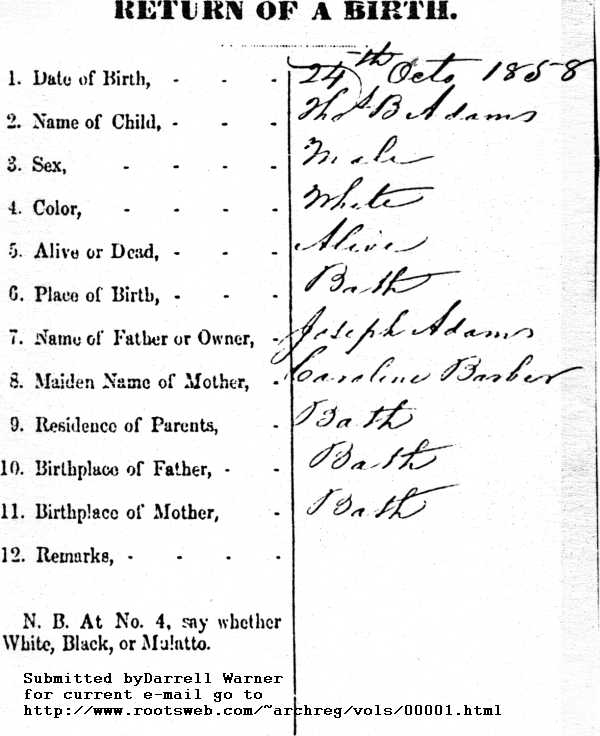 RETURN OF A BIRTH.
1. Date of Birth, - - - 24th Octo 1858
2. Name of Child, - - - Thos B Adams
3. Sex, - - - - Male
4. Color, - - - - White
5. Alive or Dead, - - - Alive
6. Place of Birth, - - - Bath
7. Name of Father or Owner, - Joseph Adams
8. Maiden Name of Mother, - Caroline Barber
9. Residence of Parents, - Bath
10. Birthplace of Father, - - Bath
11. Birthplace of Mother, - Bath
12. Remarks, - - - -
N. B. At No. 4, say whether
White, Black, or Mulatto.
Submitted byDarrell Warner
for current e-mail go to
http://www.rootsweb.com/~archreg/vols/00001.html